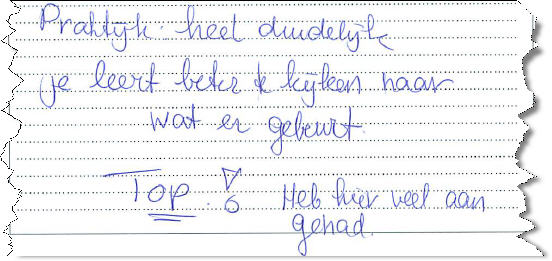 Praktijk: heel duidelijk
je leert beter te kijken naar
wat er gebeurt.
Top! Heb hier veel aan
gehad.